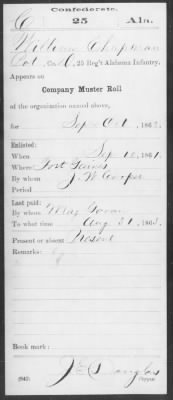 Confederate.
C 25 Ala.
William Chapman
Co. C, 25 Reg't Alabama Infantry.
Appears on
Company Muster Roll
of the organization named above,
for Sep & Oct, 1863.
Enlisted:
When Sep 10, 1861.
Where Fort Gaines
By whom J. W. Cooper
Period
Last paid:
By whom Maj
To what time Aug 31, 1863.
Present or absent Present
Remarks:
Book mark:
Douglas
(642) Copyist.